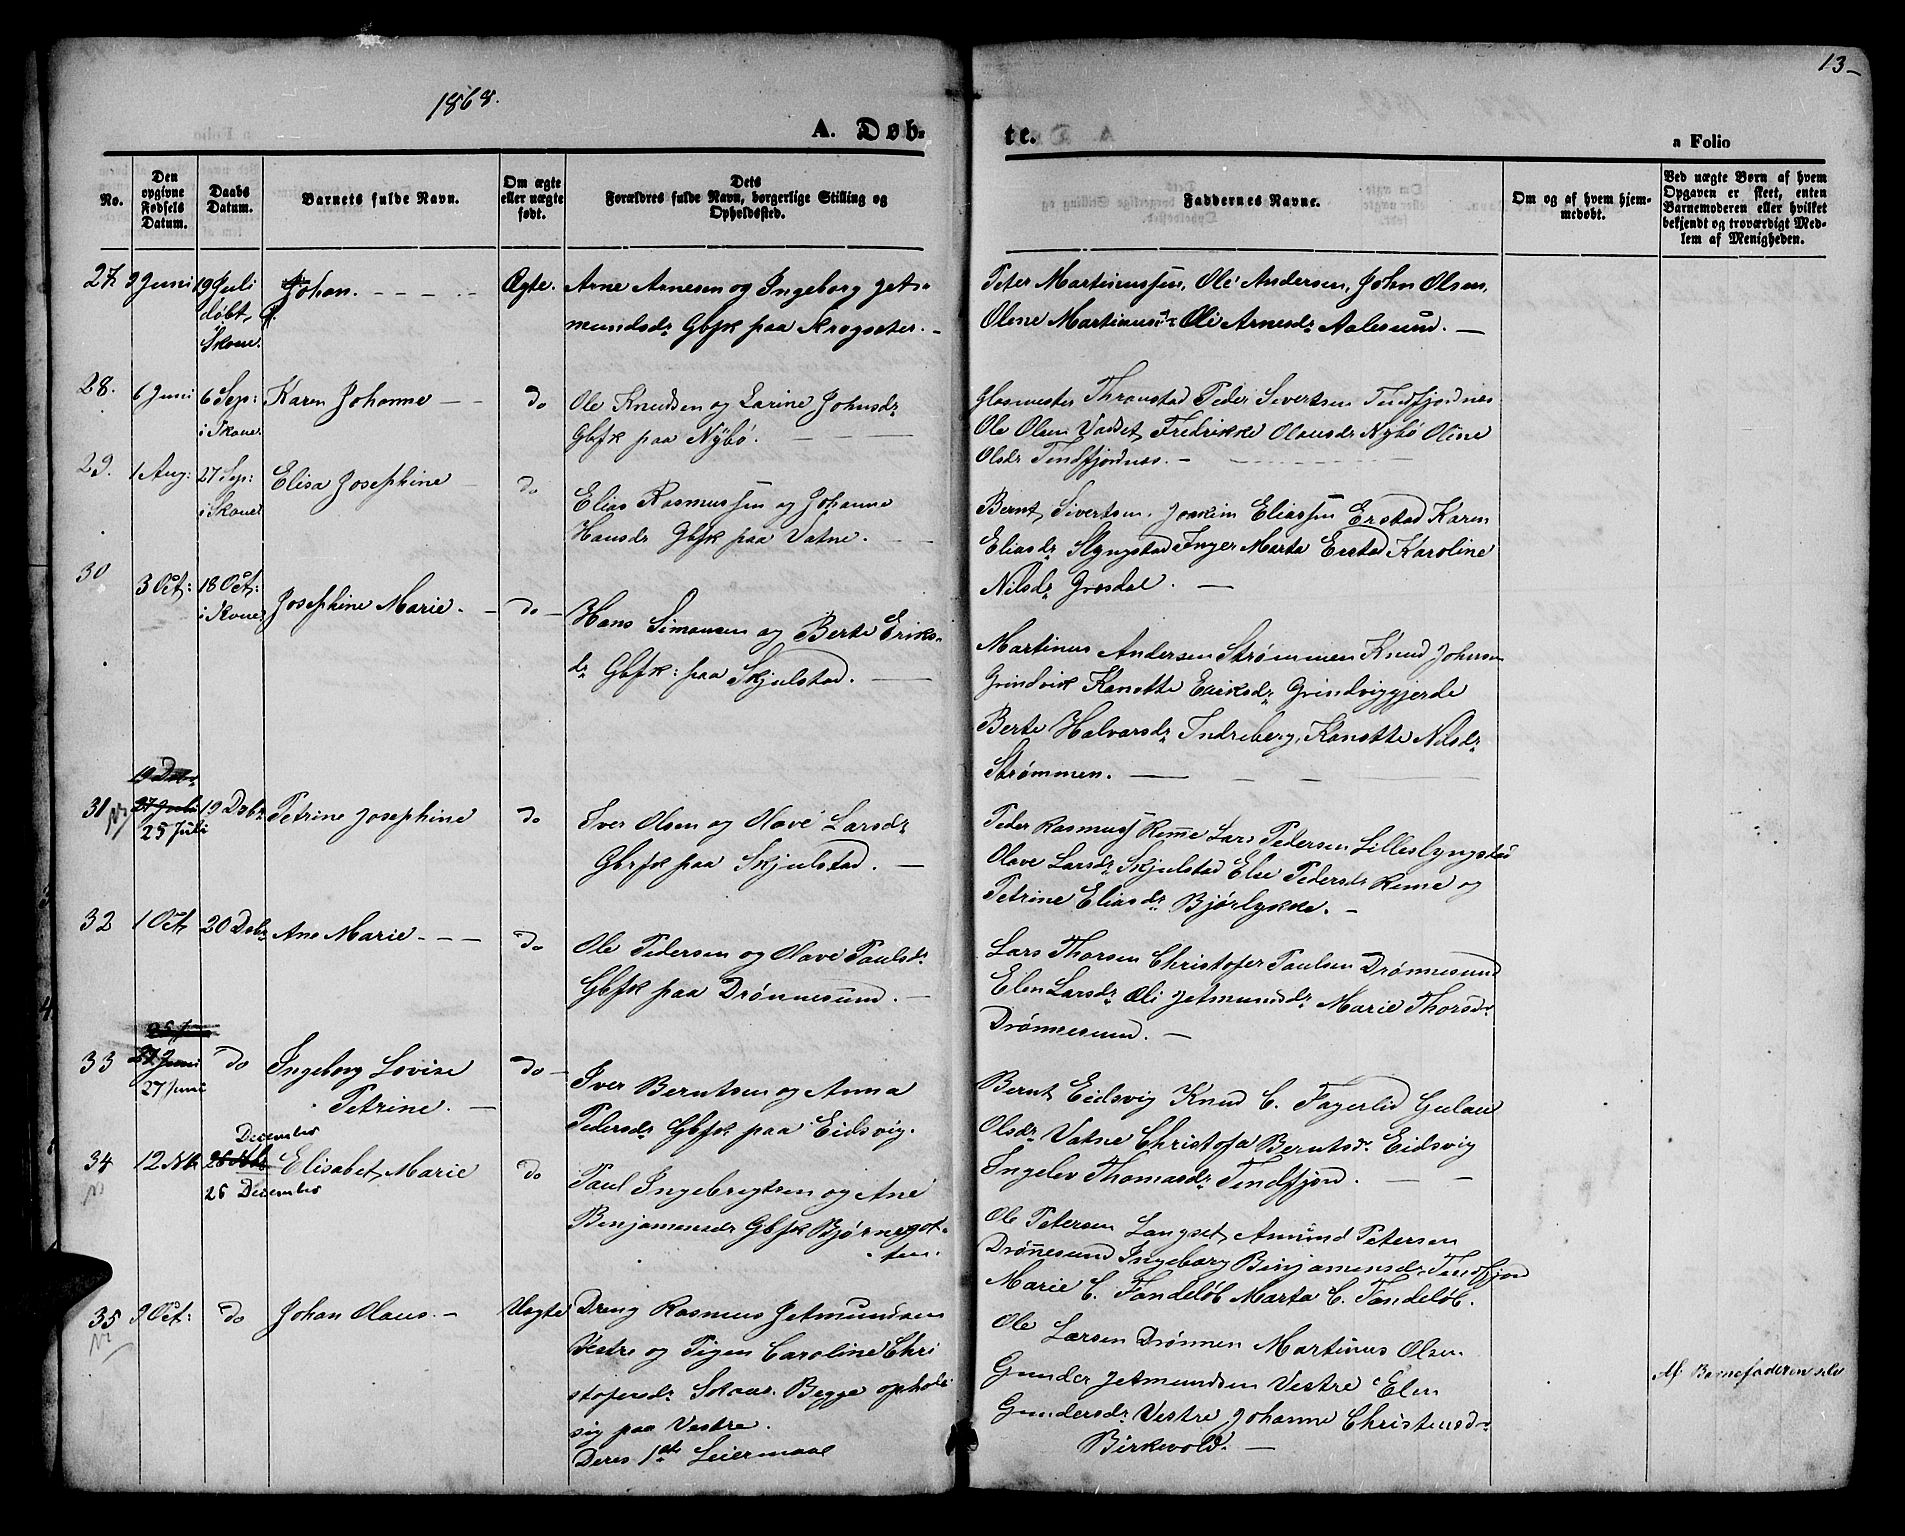 13
1868.
A. Døb-
te.
a Folio
No.
Den opgivne Fødsels Datum.
Daabs Datum.
Barnets fulde Navn.
Om ægte eller uægte født.
Dets Forældres fulde Navn, borgerlige Stilling og Opholdssted.
Faddernes Navne.
Om og af hvem hjemmedøbt.
Ved uægte Børn af hvem Opgaven er skeet, enten Barnemoderen eller hvilket bekjendt og troværdigt Medlem af Menigheden.
27 9 Juni 19 Juli Johan. Ægte.
døbt
i Skoue.
Arne Arnesen og Ingeborg Jet-
mundsdr Gbfk paa Krogsæter.
Peter Martinussen, Ole Andersen, John Olsen,
Oline Martinusdr Oli Arnesdr Aalesund.
28. 6 Juni 6 Sep: Karen Johanne do
i Skoue
Ole Knudsen og Larine Johnsdr
Gbfk paa Nybø.
Glasmester Thronstad Peder Sivertsen Tendfjordnes
Ole Olsen Vasset, Fredrikke Olausdr Nybø Oline
Olsdr Tendfjordnæs.
29. 1 Aug: 27 Sep: Elisa Josephine do
i Skoue
Elias Rasmussen og Johanne
Hansdr Gbfk paa Vatne.
Bernt Sivertsen, Joakim Eliassen Erstad Karen
Eliasdr Slyngstad Inger Marta Erstad Karoline
Nilsdr Grosdal.
30 3 Oct: 18 Oct: Josephine Marie do
i Skoue
Hans Simonsen og Berte Eriks-
dr Gbfk: paa Skjelstad.
Martinus Andersen Strømmen Knud Johnsen
Grindvik Kanutte Eriksdr Grindviggjerde
Berte Halvorsdr Indreberg, Kanutte Nilsdr
Strømmen.
19 Dbr
31 27 Juli 19 Dbr Petrine Josephine do
25 Juli
Iver Olsen og Olave Larsdr
Gbrfk paa Skjelstad.
Peder Rasmuss Remme Lars Pedersen Lilleslyngstad
Olave Larsdr Skjelstad Elie Pedersdr Reme og
Petrine Eliasdr Bjørlykke.
32 1 Oct 20 Dbr Ane Marie do
Ole Pedersen og Olave Paulsdr
Gbfk paa Drønnesund.
Lars Thorsen Christofer Paulsen Drønnesund
Elen Larsdr Oli Jetmundsdr Marie Thorsdr
Drønnesund.
33 27 Juni do Ingeborg Lovise do
27 Juni
Petrine.
Iver Berntsen og Anna
Pedersdr Gbfk paa Eidsvig.
Bernt Eidsvig Knud C. Fagerlid Gulau
Olsdr Vatne Christofa Berntsdr Eidsvig
Ingelev Thomasdr Tendfjord.
December
34 12 Nb Elisabet Marie do
26 December
Paul Ingebrigtsen og Ane
Benjamensdr Gbfk Bjørnegot-
ten.
Ole Petersen Langset, Amund Petersen
Drønnesund Ingeborg Benjamensdr Tendfjord
Marie C. Tandeløb Marta C. Tandeløb.
35 9 Oct: do Johan Olaus. Uægte
Dreng Rasmus Jetmundsen
Vestre og Pigen Caroline Chri
stofersdr Begge ophold
sig paa Vestre.
Deres 1ste Leiermaal
Ole Larsen Drønnen Martinus Olsen
Gunder Jetmundsen Vestre Elen
Gundersdr Vestre Johanne Christensdr
Birkevold.
Af Barnefaderen selv